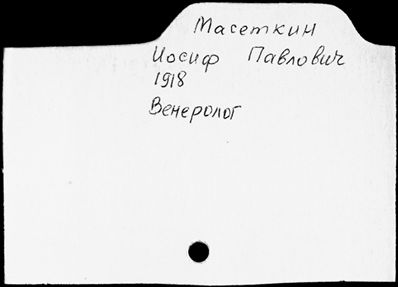 Масеткин
Иосиф Павлович
1918
Венеролог